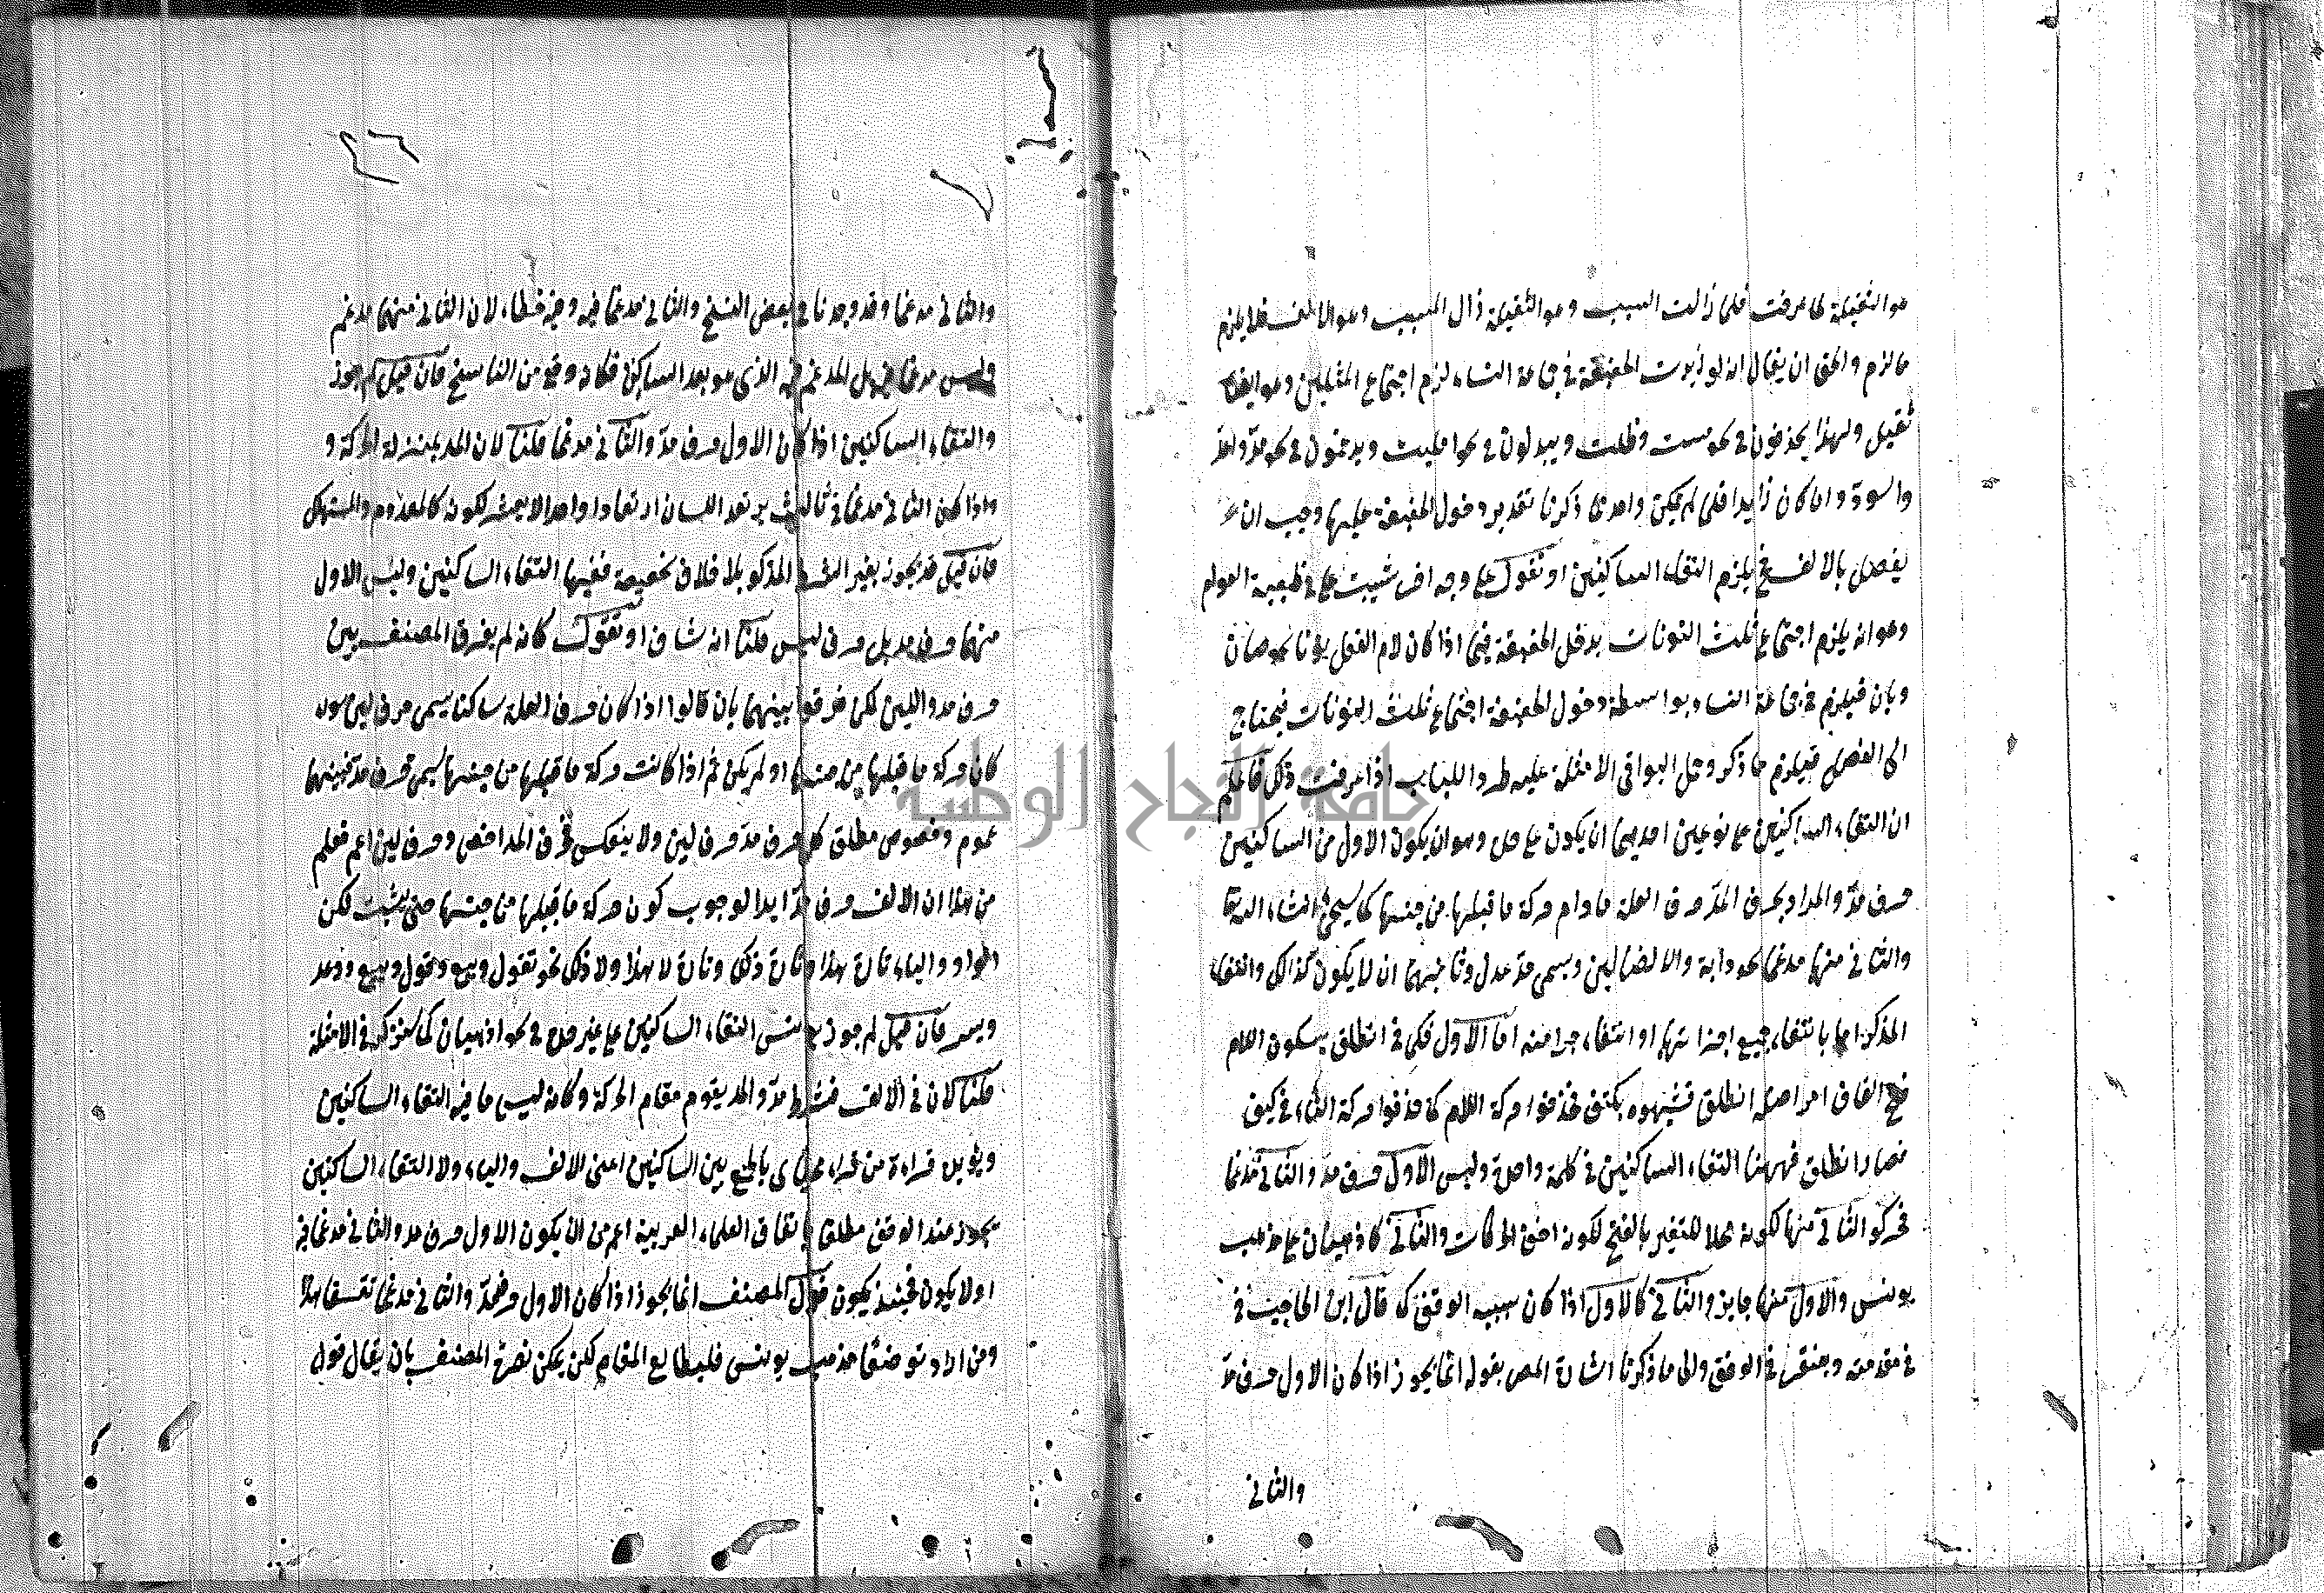 هو الثقيلة لما عرفت فلما زالت السبب وهو الثقيلة زال المسبب وهو الالف فلا يلزم
ما لزم والحق ان يقال انه لو دخلت الخفيفة في جماعة النساء لزم اجتماع المثلين وهو ايضا
ثقيل ولهذا يحذفون في نحو مست وظلت ويبدلون في نحو امليت ويدعمون في نحو مدّ واعدّ
والسوة وان كان زايدا فلما لم يكن واحد مما ذكرنا تقدير دخول الخفيفة عليها وجب ان
يفصل بالالف فح يلزم التقاء الساكنين او نقول على وجه اخر شيبت على في ظهبية العوام
وهو انه يلزم اجتماع ثلث النونات بدخل الخفيفة فيما اذا كان لام الفعل نونا نحو صان
وبان فيلزم في جماعة النساء بواسطة دخول الخفيفة اجتماع ثلث النونات فيحتاج
الى الفصل فيلزم ما ذكر وحمل البواقي الامثلة عليه طردا للباب اذا عرفت ذلك فاعلم
ان التقاء الساكنين على نوعين احديهما ان يكون على حده وهو ان يكون الاول من الساكنين
حرف مدّ والمراد بحرف المدّ حرف العلة ما دام حركة ما قبلها من جنسها كما سيجئ ان شاء الله تعا
والثاني منهما مدغما نحو دابة والا الضالين ويسمى مدّ عدل وثانيهما ان لا يكون كذالك وانتفاء
المذكور اما بانتفاء جميع اجزائهما او انتفاء جزء منه اما الاول فكما في انطلق بسكون اللام
فتح القاف امر اصله انطلق فشبهوه بكتف فحذفوا حركة اللام كما حذفوا حركة التاء في كيف
فصار انطلق فههنا التقاء الساكنين في كلمة واحدة وليس الاول حرف مد والثاني مدغما
فحركوا الثاني منهما لكونه محلا للتغير بالفتح لكونه اخف الحركات والثاني كاذهبان على مذهب
يونس والاول منهما جايز والثاني كالاول اذا كان سبب الوقف كما قال ابن الحاجب في
في مقدمته ويغتفر في الوقف والى ما ذكرنا اشارة المص بقوله انما يجوز اذا كان الاول حرف مدّ
والثاني
والثاني مدغما وقد وجدنا في بعض النسخ والثاني مدغما فيه وفيه خطاء لان الثاني منهما مدغم
وليس مدغما فيه بل المدغم فيه الذي هو بعد الساكن فكانه وقع من الناسخ فان قيل لم يجوز
والتقاء الساكنين اذا كان الاول حرف مدّ والثاني مدغما قلنا لان المد بمنزلة الحركة و
واذا كان الثاني مدغما في ثالث يرتفع اللسان ارتفاعا واحدا لا يعسر لكونه كالمعدوم والمستهلك
فان قيل قد يجوز بغير الشرط المذكور بلا خلاف نحو خويصة ففيها التقاء الساكنين وليس الاول
منهما حرف مد بل حرف لين قلنا انه شاذ او نقول كانه لم يفرق المصنف بين
حرف مد واللين لكن فرقوا بينهما بان قالوا اذا كان حرف العلة ساكنا يسمى حرف لين سواء
كان حركة ما قبلها من جنسها او لم يكن ثم اذا كانت حركة ما قبلها من جنسها يسمى حرف مدّ فبينهما
عموم وخصوص مطلق كل حرف مدّ حرف لين ولا ينعكس فحرف المد اخص وحرف لين اعم فعلم
من هذا ان الالف حرف مدّ ابدا لوجوب كون حركة ما قبلها من جنسها حتى يثبت لكن
الواو والياء تارة هذا وتارة ذلك وتارة لا هذا ولا ذلك نحو تقول وبيع وقول وبيع ووعد
ويسر فان قيل لم جوز يونس التقاء الساكنين على غير حده في نحو اذهبان كما سنذكره في الامثلة
قلنا كان في الالف فشرط مدّ والمد يقوم مقام الحركة وكانه ليس ما فيه التقاء الساكنين
ويؤيده قراءة من قراء محياى بالجمع بين الساكنين اعنى الالف والياء ولا التقاء الساكنين
يجوز عند الوقف مطلقا باتفاق العلماء العربية اعم من ان يكون الاول حرف مد والثاني مدغما فيه
اولا يكون فحينئذ يكون قول المصنف انما يجوز اذا كان الاول حرف مدّ والثاني مدغما
ومن اراد توضيحا مذهب يونس فليطالع المقام لكن يمكن نصرة المصنف بان يقال قول
جامعة النجاح الوطنية